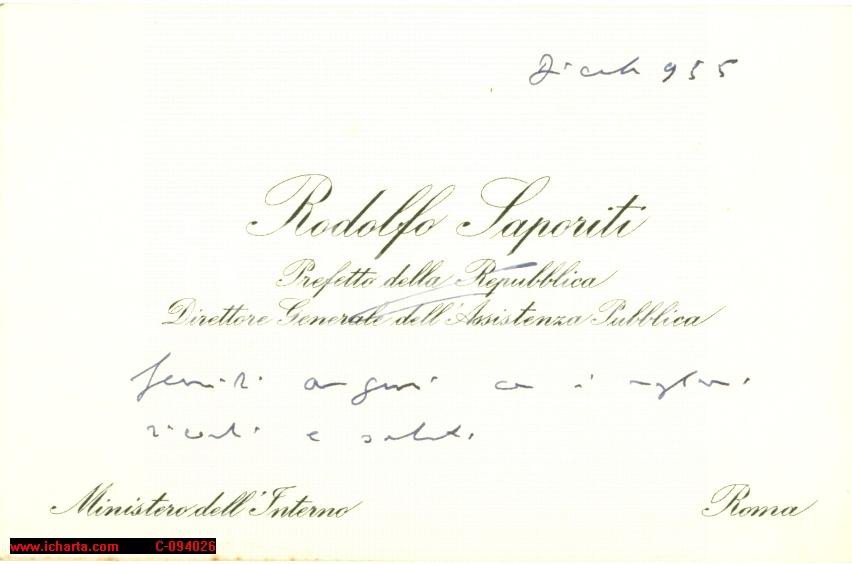 955
Rodolfo Saporiti
Prefetto della Repubblica
Direttore Generale dell'Assistenza Pubblica
auguri con i migliori
ricordi e saluti
Ministero dell'Interno
Roma
www.icharta.com C-094026